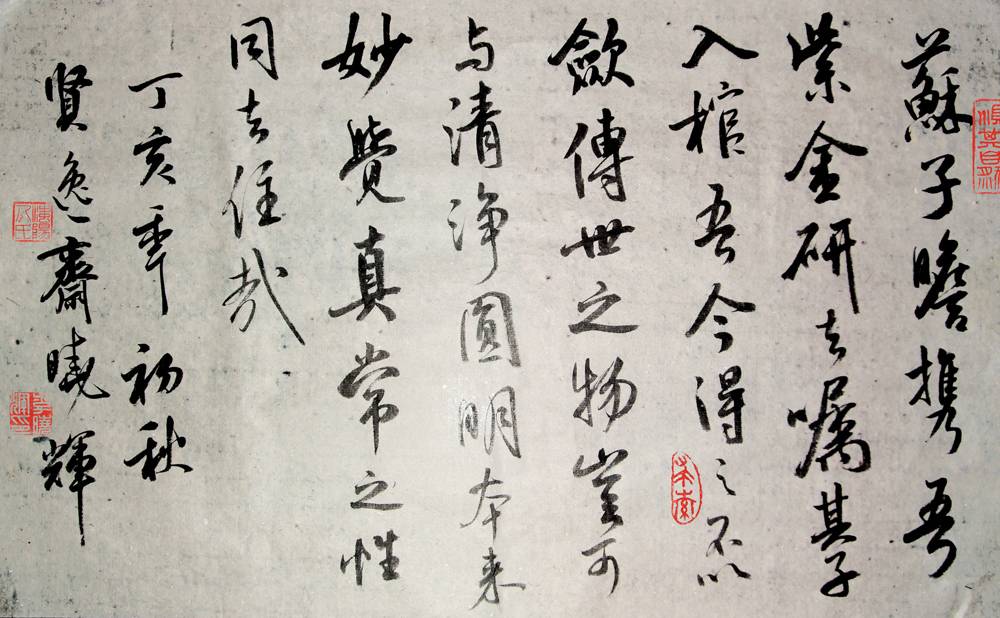 蘇子瞻攜吾
紫金研去囑其子
入棺吾今得之不以
斂傳世之物豈可
与清淨圓明本来
妙覺真常之性
同去住哉
丁亥年初秋
賢逸齋曉輝